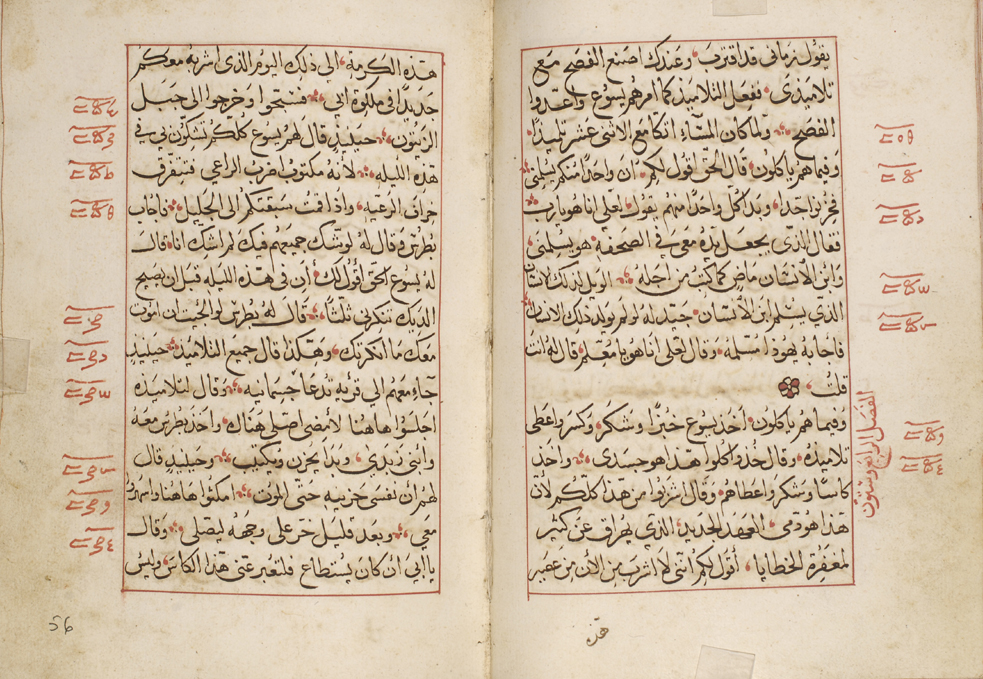 يقول زماني قد اقترب وعندك اصنع الفصح مع
تلاميذي ففعل التلاميذ كما امرهم يسوع واعدوا
الفصح ولما كان المساء اتكا مع الاثنى عشر تلميذا
وفيما هم ياكلون قال الحق اقول لكم ان واحدا منكم يسلمني
فحزنوا جدا وبدا كل واحدا منهم يقول لعلي انا هو يارب
فقال الذي يجعل يده معي في الصحفه هو يسلمني
وابن الانسان ماض كما كتب من اجله الويل لذلك الانسان
الذي يسلم ابن الانسان جيد له لو لم يولد ذلك الانسان
فاجابه يهوذا مسلمه وقال لعلي انا هو يا معلم قال له انت
قلت
الفصل الرابع وستون
وفيما هم ياكلون اخذ يسوع خبزا وشكر وكسر واعطى
تلاميذه وقال خذوا كلوا هذا هو جسدي واخذ
كاسا وشكر واعطاهم وقال اشربوا من هذا كلكم لان
هذا هو دمي العهد الجديد الذي يهراق عن كثير
لمغفرة الخطايا اقول لكم انني لا اشرب من الان من عصير
هذه
هذه الكرمة الى ذلك اليوم الذي اشربه معكم
جديدا في ملكوة ابي فسبحوا وخرجوا الى جبل
الزيتون حينيذ قال لهم يسوع كلكم تشكون بي في
هذه الليله لانه مكتوب اضرب الراعي فتتفرق
خراف الرعيه واذا قمت سبقتكم الى الجليل فاجاب
بطرس وقال له لو شك جميعهم فيك لم اشك انا قال
له يسوع الحق اقول لك أن في هذه الليله قبل ان يصيح
الديك تنكرني ثلثا قال له بطرس لو الجيت ان اموت
معك ما انكرتك وهكذا قال جميع التلاميذ حينيذ
جاء معهم الى قريه تدعا جسمانيه وقال لتلاميذه
اجلسوا هاهنا لأمضي اصلي هناك واخذ بطرس معه
وابني زبدي وبدا يحزن ويكتيب وحينيذ قال
لهم أن نفسي حزينه حتى الموت امكثوا هاهنا واسهروا
معي وبعد قليل خر على وجهه ليصلي وقال
يا ابي ان كان يستطاع فلتعبر عني هذا الكاس وليس
56